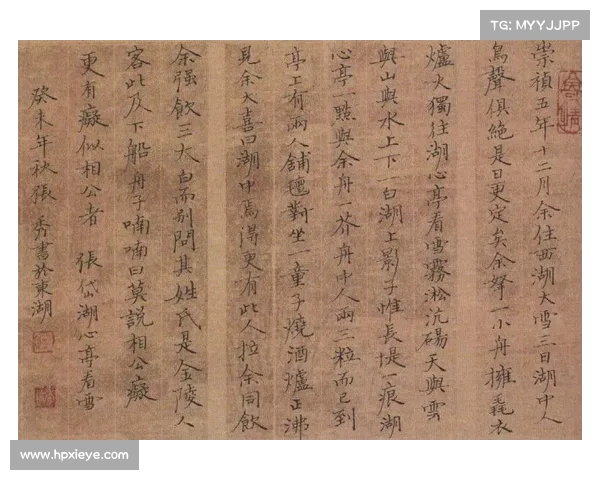 TG: MYYJJPP
崇禎五年十二月余住西湖大雪三日湖中人
鳥聲俱絕是日更定矣余拏一小舟擁毳衣
爐火獨往湖心亭看雪霧淞沆碭天與雲
與山與水上下一白湖上影子惟長堤一痕湖
心亭一點與余舟一芥舟中人兩三粒而已到
亭上有兩人鋪氈對坐一童子燒酒爐正沸
見余大喜曰湖中焉得更有此人拉余同飲
余强飲三大白而别問其姓氏是金陵人
客此及下船舟子喃喃曰莫說相公癡
更有癡似相公者 張岱湖心亭看雪
癸未年秋張秀書於東湖
www.hpxieye.com